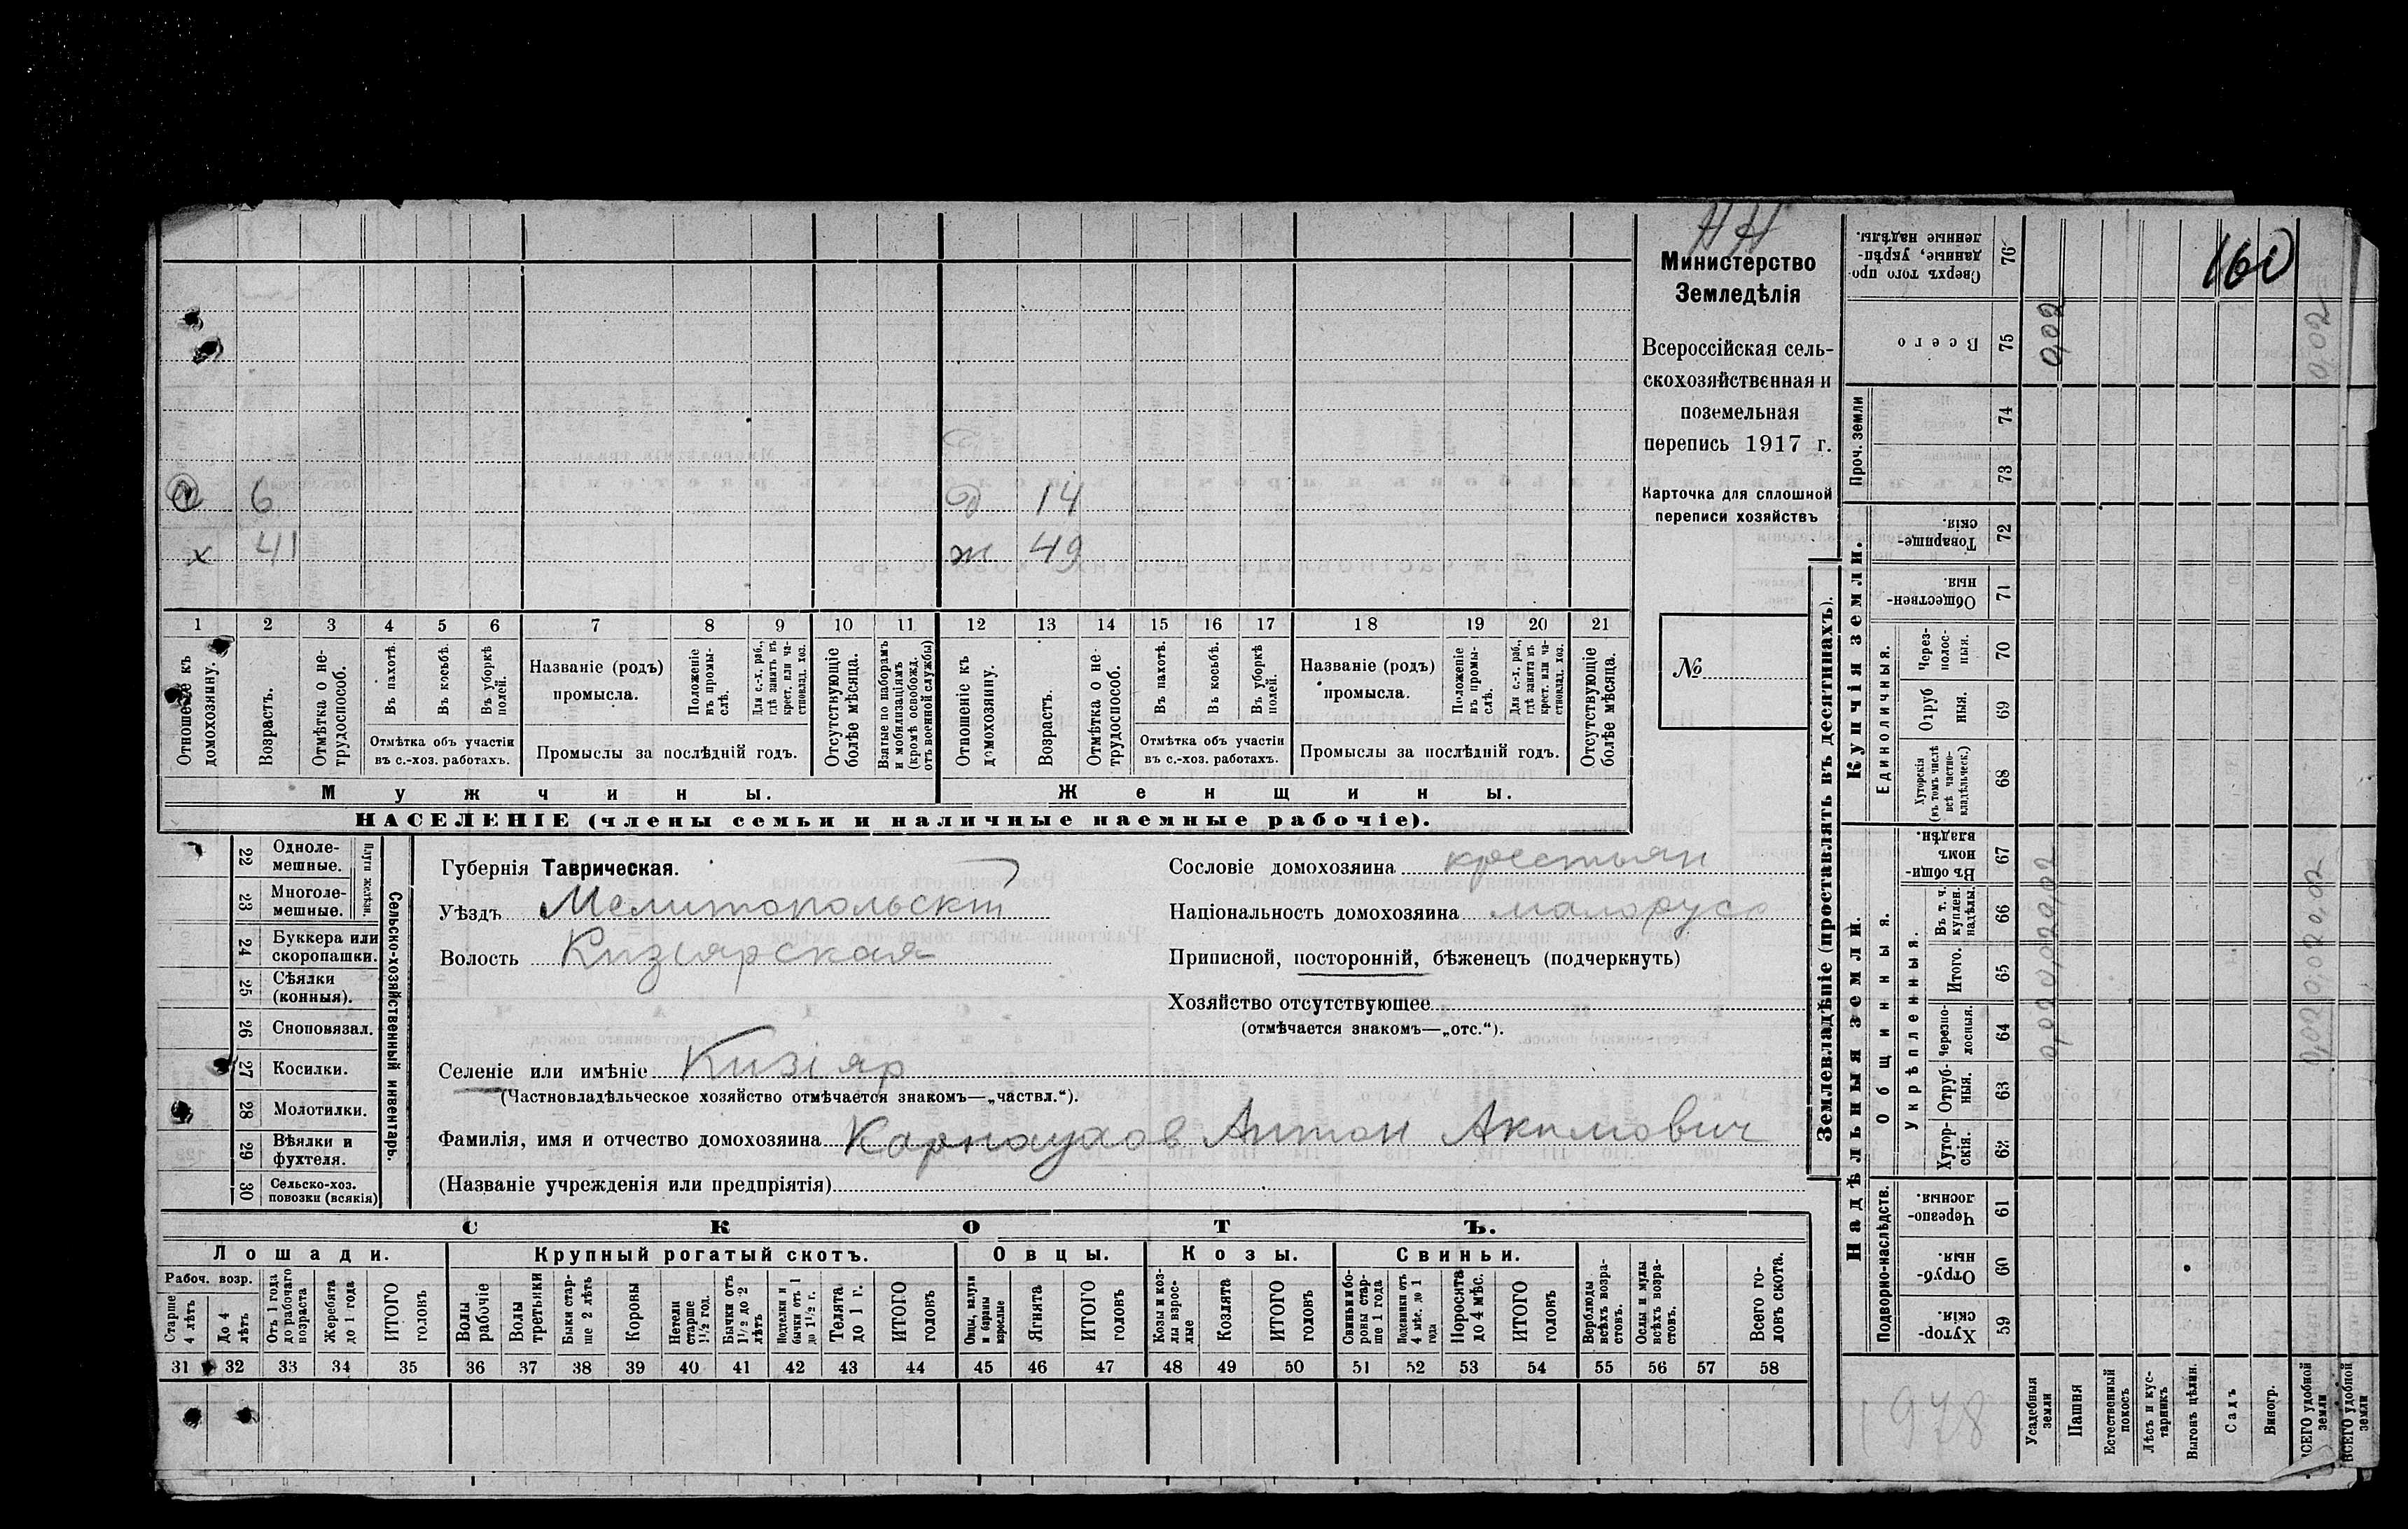 НН
Министерство
Земледѣлія
Всероссійская сель-
скохозяйственная и
поземельная
перепись 1917 г.
Карточка для сплошной
переписи хозяйствъ
№
6
14
х 41
ж 49
1 2 3 4 5 6 7 8 9 10 11 12 13 14 15 16 17 18 19 20 21
Отношеніе къ домохозяину.
Возрастъ.
Отмѣтка о не-трудоспособ.
Въ пахотѣ.
Въ косьбѣ.
Въ уборкѣ полей.
Отмѣтка объ участіи
въ с.-хоз. работахъ.
Названіе (родъ)
промысла.
Положеніе въ промы-слѣ.
Для с.-х. раб., гдѣ занятъ въ крест. или ча-стновлад. хоз.
Промыслы за послѣдній годъ.
Отсутствующіе болѣе мѣсяца.
Взятые по наборамъ и мобилизаціямъ (кромѣ освобожд. отъ военной службы)
Отношеніе къ домохозяину.
Возрастъ.
Отмѣтка о не-трудоспособ.
Въ пахотѣ.
Въ косьбѣ.
Въ уборкѣ полей.
Отмѣтка объ участіи
въ с.-хоз. работахъ.
Названіе (родъ)
промысла.
Положеніе въ промы-слѣ.
Для с.-х. раб., гдѣ занята въ крест. или ча-стновлад. хоз.
Промыслы за послѣдній годъ.
Отсутствующіе болѣе мѣсяца.
Мужчины.
Женщины.
НАСЕЛЕНІЕ (члены семьи и наличные наемные рабочіе).
Сельско-хозяйственный инвентарь.
Плуги желѣзн.
22 Одноле-мешные.
23 Многоле-мешные.
24 Буккера или скоропашки.
25 Сѣялки (конныя).
26 Сноповязал.
27 Косилки.
28 Молотилки.
29 Вѣялки и фухтеля.
30 Сельско-хоз. повозки (всякія)
Губернія Таврическая.
Уѣздъ Мелитопольскій
Волость Кизіярская
Сословіе домохозяина крестьян
Національность домохозяина малорусс
Приписной, посторонній, бѣженецъ (подчеркнуть)
Хозяйство отсутствующее
(отмѣчается знакомъ—„отс.“).
Селеніе или имѣніе Кизіяр
(Частновладѣльческое хозяйство отмѣчается знакомъ—„частвл.“).
Фамилія, имя и отчество домохозяина Карнаухов Антон Акимович
(Названіе учрежденія или предпріятія)
СКОТЪ.
Лошади.
Крупный рогатый скотъ.
Овцы.
Козы.
Свиньи.
Рабоч. возр.
Старше 4 лѣтъ
До 4 лѣтъ
Отъ 1 года до рабочаго возраста
Жеребята до 1 года
ИТОГО головъ
Волы рабочіе
Волы третьяки
Быки стар-ше 2 лѣтъ
Коровы
Нетели старше 1½ год.
Бычки отъ 1½ до 2 лѣтъ
Подтелки и бычки отъ 1 до 1½ г.
Телята до 1 г.
ИТОГО головъ
Овцы, валухи и бараны взрослые
Ягнята
ИТОГО головъ
Козы и коз-лы взрос-лые
Козлята
ИТОГО головъ
Свиньи и бо-ровы стар-ше 1 года
Подсвинки отъ 4 мѣс. до 1 года
Поросята до 4 мѣс.
ИТОГО головъ
Верблюды всѣхъ возра-стовъ.
Ослы и мулы всѣхъ возра-стовъ.
Всего го-ловъ скота.
31 32 33 34 35 36 37 38 39 40 41 42 43 44 45 46 47 48 49 50 51 52 53 54 55 56 57 58
Землевладѣніе (проставлять въ десятинахъ).
Надѣльныя земли.
Купчія земли.
Подворно-наслѣдств.
Общинныя.
Укрѣпленныя.
Единоличныя.
Проч. земли
59 Хутор-скія.
60 Отруб-ныя.
61 Черезпо-лосныя.
62 Хутор-скія.
63 Отруб-ныя.
64 Черезпо-лосныя.
65 Итого.
66 Въ т. ч. куплен. надѣлы.
67 Въ общи-номъ владѣн.
68 Хуторскія (въ томъ числѣ всѣ частно-владѣльческ.)
69 Отруб ныя.
70 Через-полос-ныя.
71 Обществен-ныя.
72 Товарище-скія.
73
74
75 Всего
76 Сверхъ того про-данные, укрѣп-ленные надѣлы.
Усадебныя земли
Пашня
Естественный покосъ
Лѣсъ и кус-тарникъ
Выгонъ цѣлин.
Садъ
Виногр.
ВСЕГО удобной земли
ВСЕГО удобной земли
0,02
0,02
0,02 0,02 0,02
0,02 0,02 0,02
160
1978